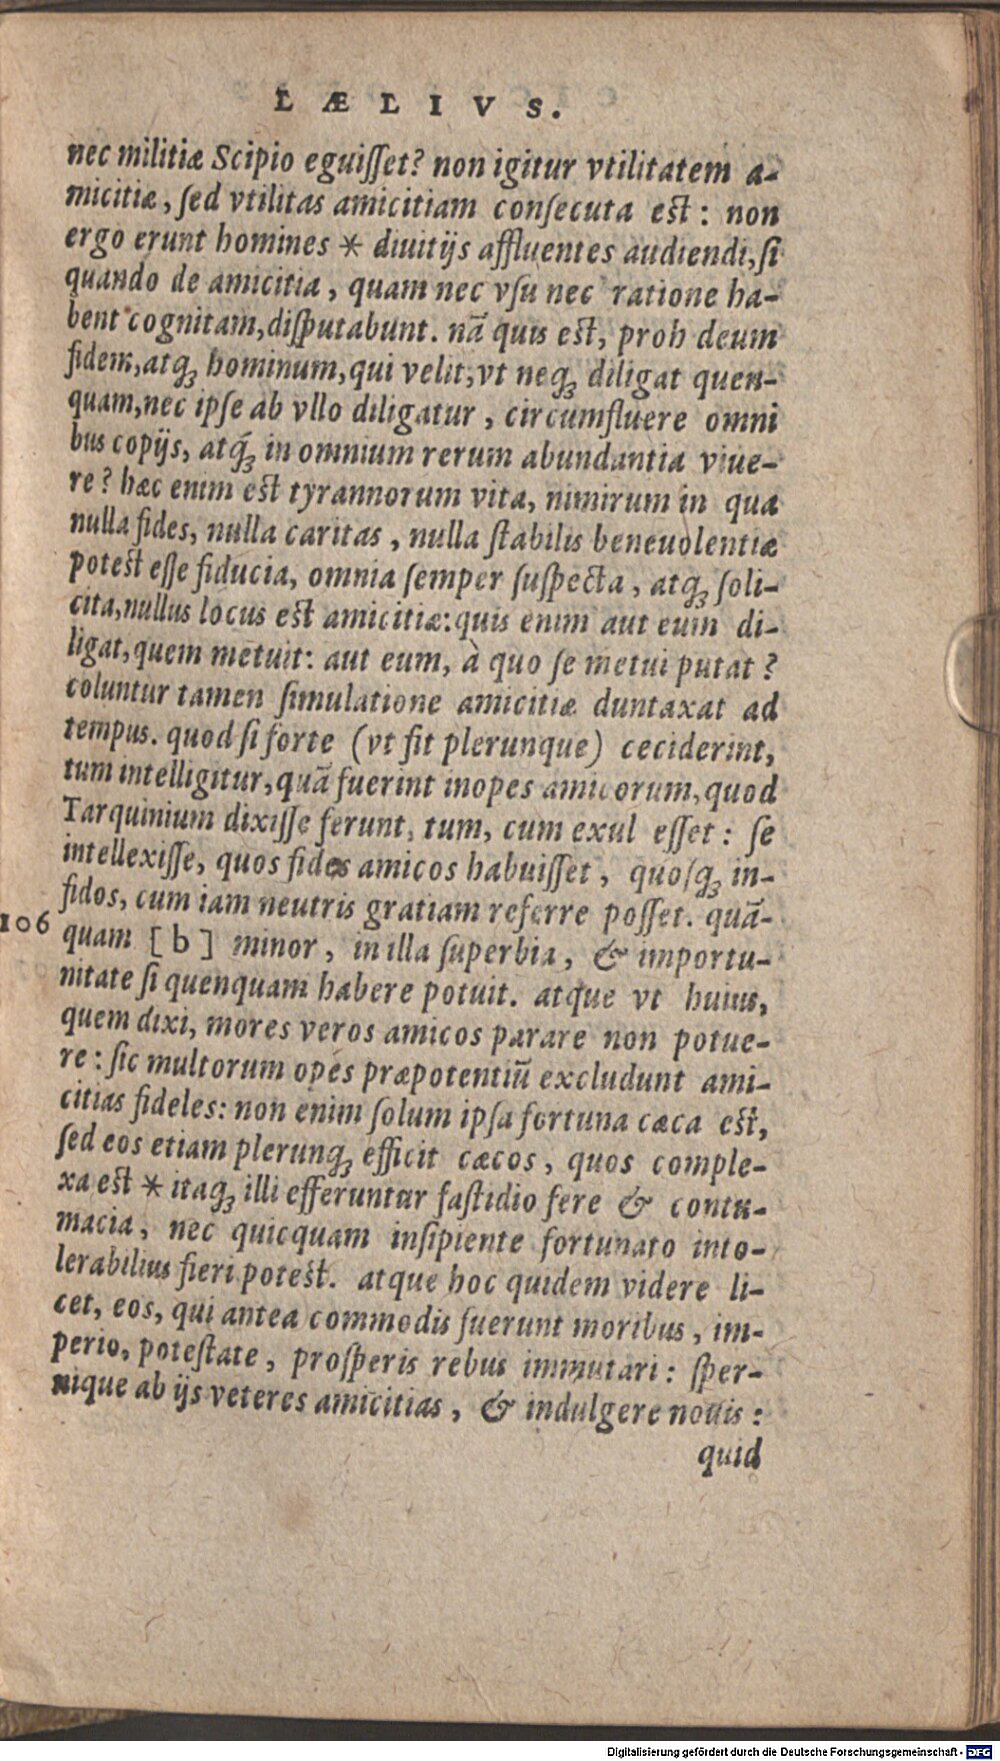 LÆLIVS.
nec militiæ Scipio eguiſſet? non igitur vtilitatem a-
micitiæ, ſed vtilitas amicitiam conſecuta est: non
ergo erunt homines * diuitijs affluentes audiendi, ſi
quando de amicitia, quam nec vſu nec ratione ha-
bent cognitam, diſputabunt. nā quis est, proh deum
fidem, atq́ꝫ hominum, qui velit, vt neq́ꝫ diligat quen-
quam, nec ipſe ab vllo diligatur, circumfluere omni
bus copijs, atq́ꝫ in omnium rerum abundantia viue-
re? hæc enim est tyrannorum vita, nimirum in qua
nulla fides, nulla caritas, nulla ſtabilis beneuolentiæ
potest eſſe fiducia, omnia ſemper ſuſpecta, atqꝫ ſoli-
cita, nullus locus est amicitiæ: quis enim aut eum di-
ligat, quem metuit: aut eum, à quo ſe metui putat?
coluntur tamen ſimulatione amicitiæ duntaxat ad
tempus. quod ſi forte (vt fit plerunque) ceciderint,
tum intelligitur, quā fuerint inopes amicorum, quod
Tarquinium dixiſſe ferunt, tum, cum exul eſſet: ſe
intellexiſſe, quos fidos amicos habuiſſet, quoſqꝫ in-
fidos, cum iam neutris gratiam referre poſſet. quā-
106 quam [b] minor, in illa ſuperbia, & importu-
nitate ſi quenquam habere potuit. atque vt huius,
quem dixi, mores veros amicos parare non potue-
re: ſic multorum opes præpotentiū excludunt ami-
citias fideles: non enim ſolum ipſa fortuna cæca est,
ſed eos etiam plerunqꝫ efficit cæcos, quos comple-
xa est * itaqꝫ illi efferuntur faſtidio fere & contu-
macia, nec quicquam inſipiente fortunato into-
lerabilius fieri potest. atque hoc quidem videre li-
cet, eos, qui antea commodis fuerunt moribus, im-
perio, poteſtate, proſperis rebus immutari: ſper-
nique ab ijs veteres amicitias, & indulgere nouis:
quid
Digitalisierung gefördert durch die Deutsche Forschungsgemeinschaft - DFG